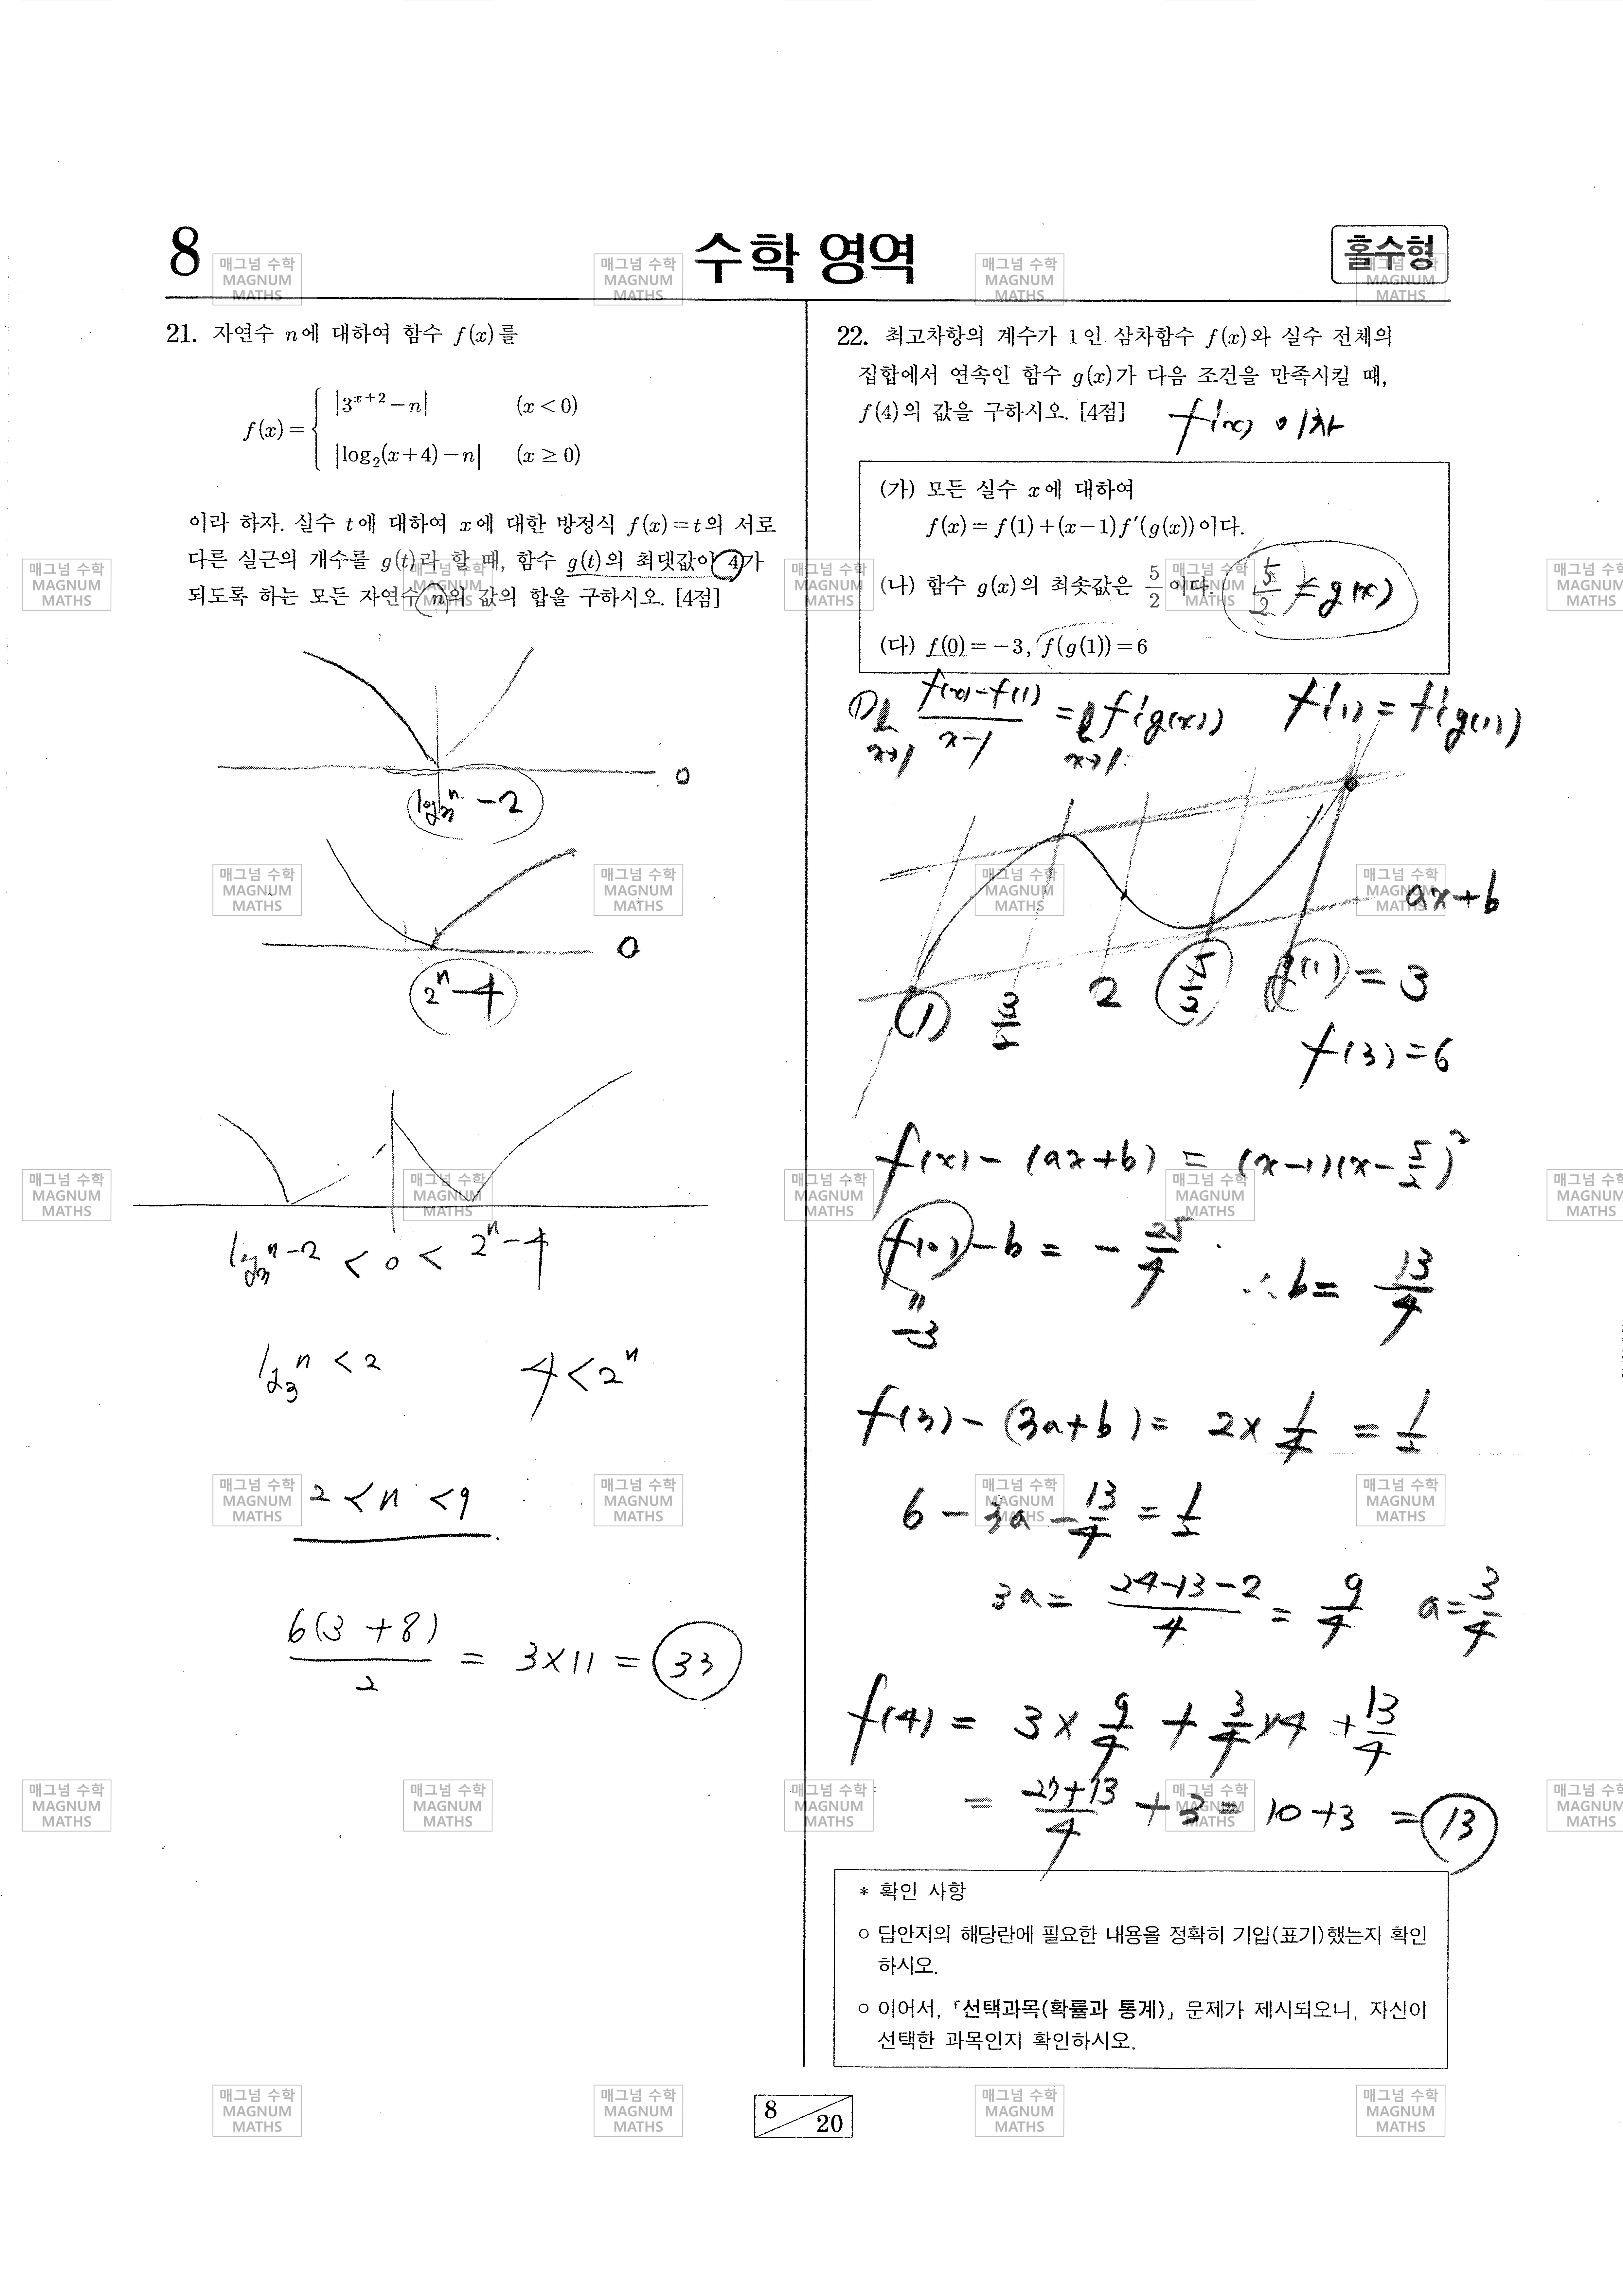 8
수학 영역
홀수형
21. 자연수 n에 대하여 함수 f(x)를
f(x) = { |3^{x+2} − n| (x < 0)
|log₂(x+4) − n| (x ≥ 0)
이라 하자. 실수 t에 대하여 x에 대한 방정식 f(x) = t의 서로
다른 실근의 개수를 g(t)라 할 때, 함수 g(t)의 최댓값이 4가
되도록 하는 모든 자연수 n의 값의 합을 구하시오. [4점]
0
log₃ⁿ − 2
0
2ⁿ − 4
log₃ⁿ − 2 < 0 < 2ⁿ − 4
log₃ⁿ < 2 4 < 2ⁿ
2 < n < 9
6(3 + 8)/2 = 3×11 = 33
22. 최고차항의 계수가 1인 삼차함수 f(x)와 실수 전체의
집합에서 연속인 함수 g(x)가 다음 조건을 만족시킬 때,
f(4)의 값을 구하시오. [4점]
f'(x) 이차
(가) 모든 실수 x에 대하여
f(x) = f(1) + (x−1)f′(g(x))이다.
(나) 함수 g(x)의 최솟값은 5/2이다. 5/2 ≤ g(x)
(다) f(0) = −3, f(g(1)) = 6
① l x→1 f(x) − f(1) / x−1 = l x→1 f'(g(x)) f'(1) = f'(g(1))
ax+b
1 3/2 2 5/2 g(1) = 3
f(3) = 6
f(x) − (ax+b) = (x−1)(x−5/2)²
f(0) − b = −25/4 ∴ b = 13/4
"
−3
f(3) − (3a+b) = 2×1/4 = 1/2
6 − 3a − 13/4 = 1/2
3a = 24−13−2/4 = 9/4 a = 3/4
f(4) = 3×9/4 + 3/4×4 + 13/4
= 27+13/4 + 3 = 10+3 = 13
* 확인 사항
○ 답안지의 해당란에 필요한 내용을 정확히 기입(표기)했는지 확인
하시오.
○ 이어서, 「선택과목(확률과 통계)」 문제가 제시되오니, 자신이
선택한 과목인지 확인하시오.
8
20
매그넘 수학
MAGNUM
MATHS